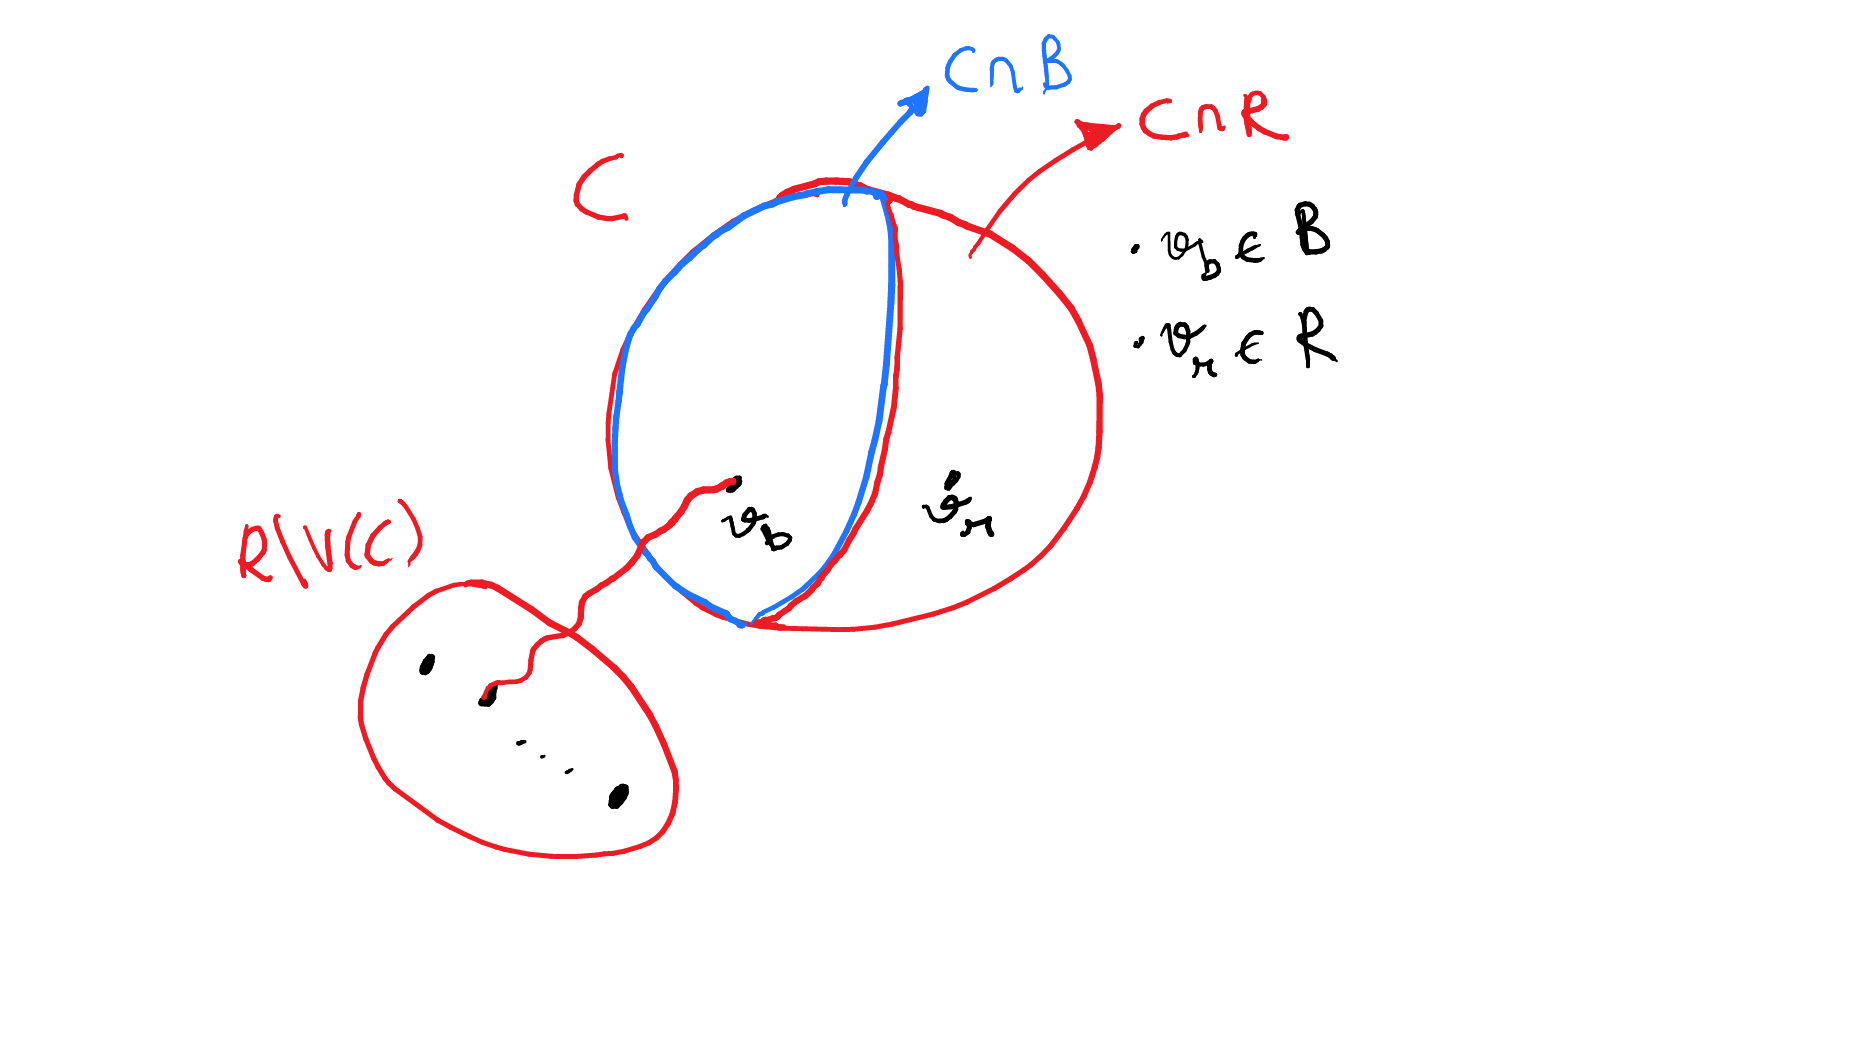 C∩B
C∩R
C
· v_b ∈ B
· v_r ∈ R
v_b
v_r
R\V(C)